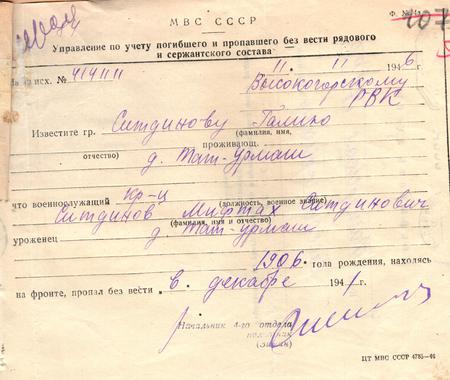 МВС СССР
Ф. №
Управление по учету погибшего и пропавшего без вести рядового
и сержантского состава
11. 11 1946 г.
На исх. №
Высокогорскому
РВК
Известите гр. Ситдинову Галию
(фамилия, имя,
проживающ.
отчество)
д. Тат-Урмаш
что военнослужащий кр-ц
(должность, военное звание)
Ситдинов Мифтах Ситдинович
(фамилия, имя и отчество)
уроженец д Тат-Урмаш
1906 года рождения, находясь
на фронте, пропал без вести в декабре 1941 г.
Начальник 4-го отдела
ЦТ МВС СССР 4785—46